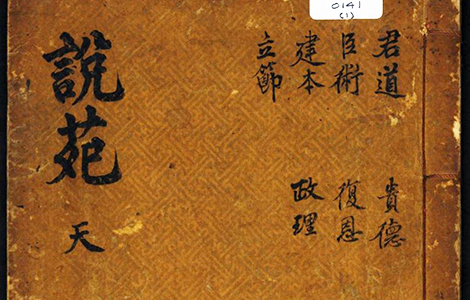 0141
(1)
君道
臣術
建本
立節
貴德
復恩
政理
說苑
天